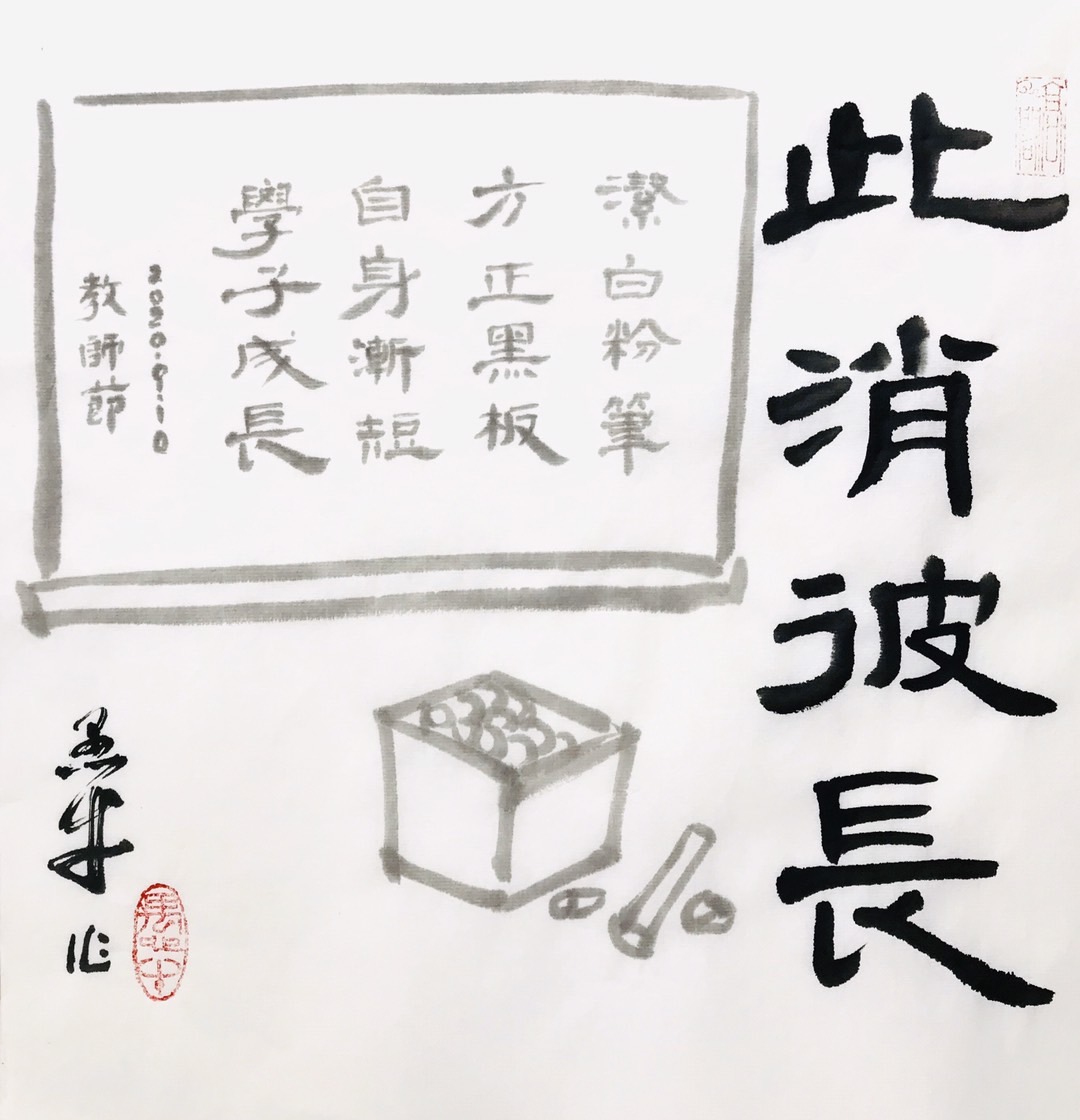 此消彼長
潔白粉筆
方正黑板
自身漸短
學子成長
2020.9.10
教師節
愚牛作